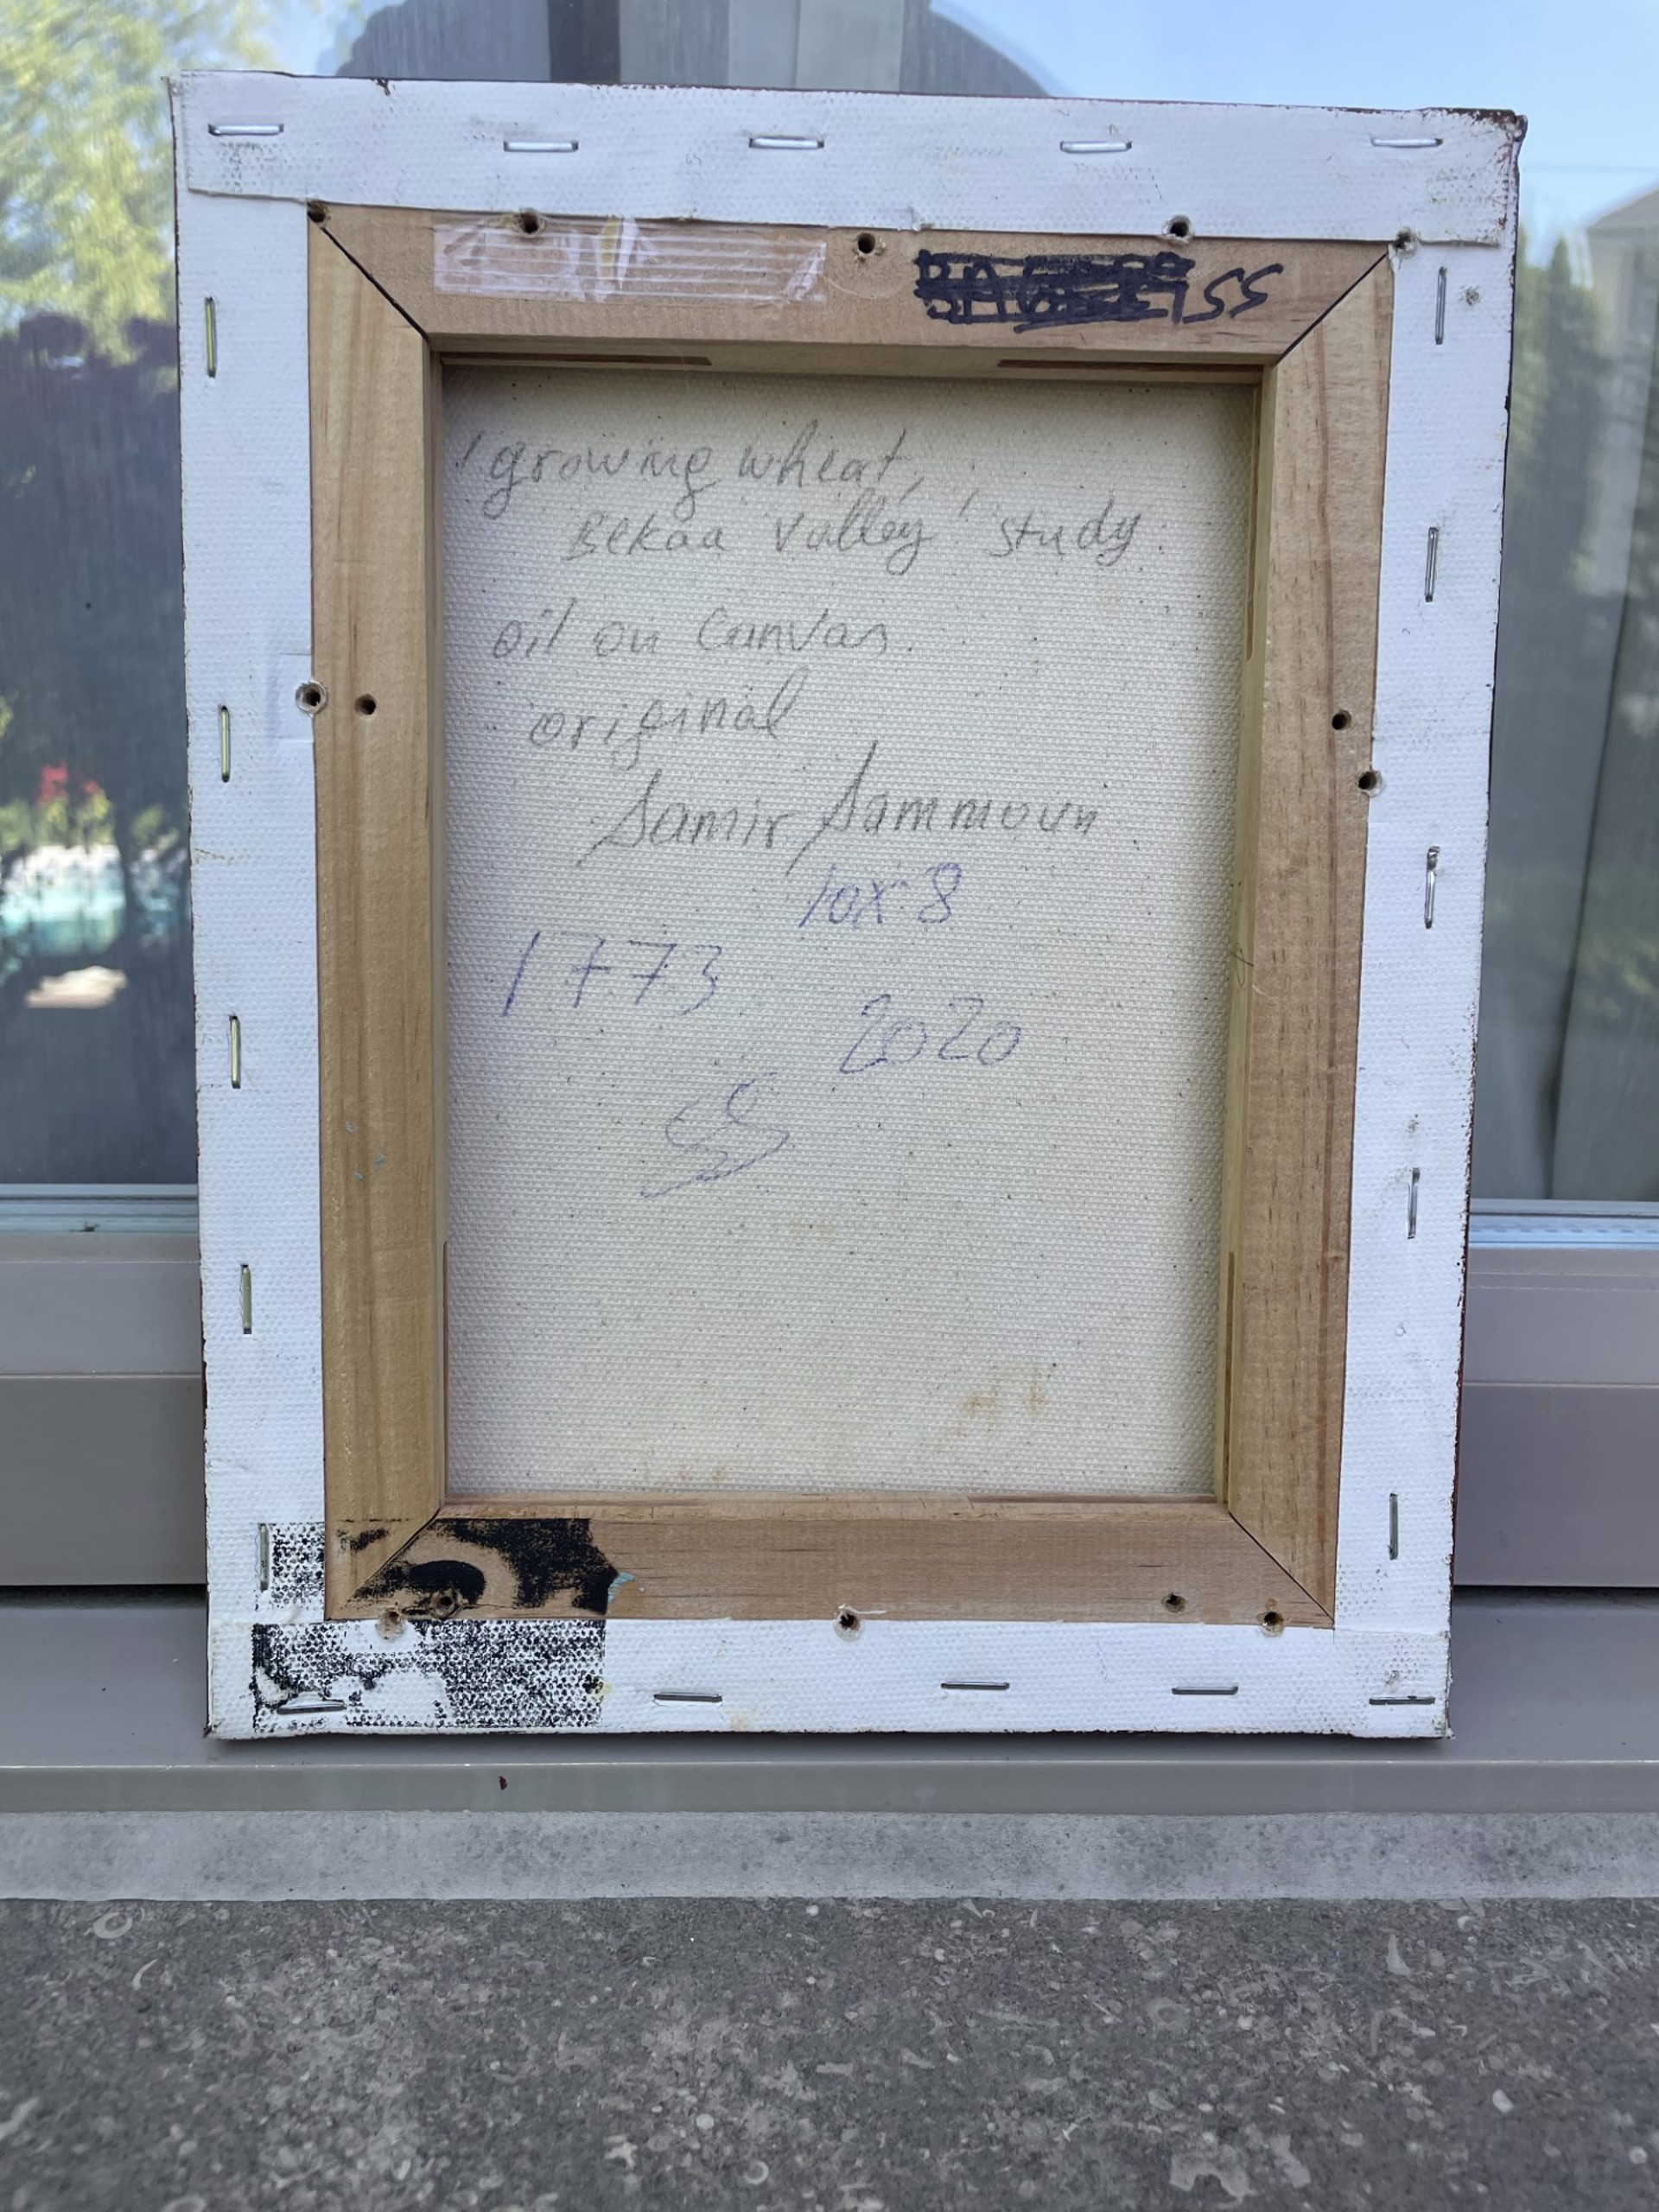 SS
'growing wheat,
Bekaa Valley' study.
oil on Canvas.
original
Samir Sammoun
10x8
1773
2020
SS